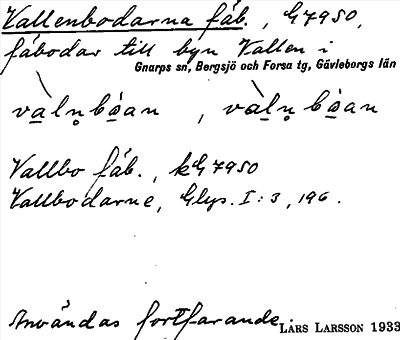 Vallenbodarna fäb., G7950,
fäbodar till byn Vallen i
Gnarps sn, Bergsjö och Forsa tg, Gävleborgs län
Vallbo fäb., kG7950
Vallbodarne, Glys. I:3, 196.
Användas fortfarande.
LARS LARSSON 1933